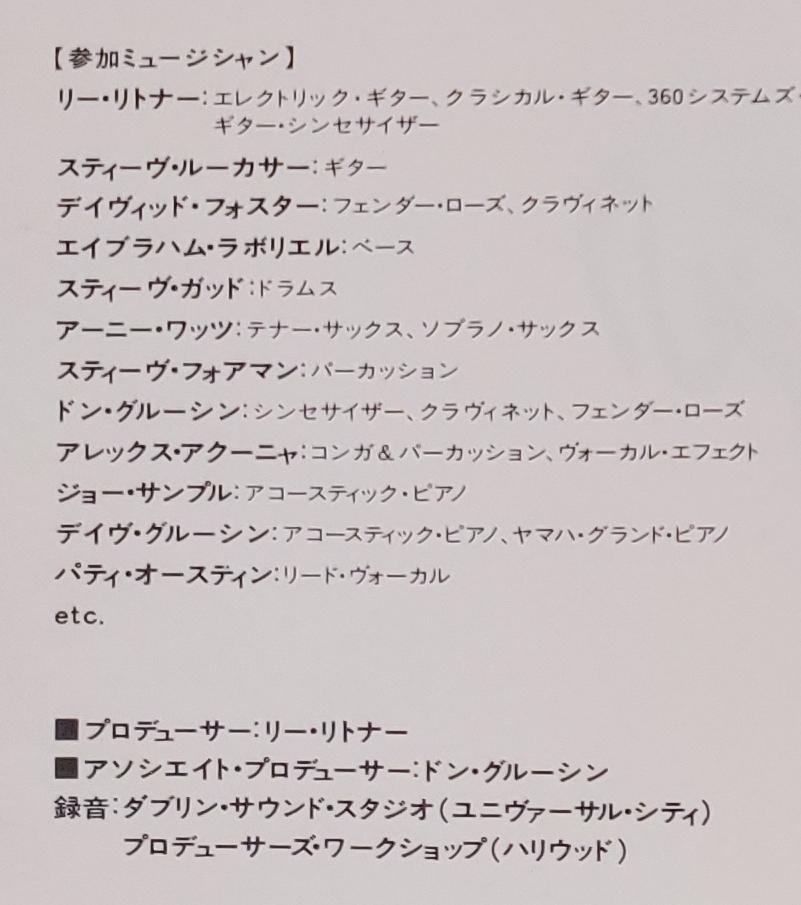 【参加ミュージシャン】
リー・リトナー：エレクトリック・ギター、クラシカル・ギター、360システムズ・
ギター・シンセサイザー
スティーヴ・ルーカサー：ギター
デイヴィッド・フォスター：フェンダー・ローズ、クラヴィネット
エイブラハム・ラボリエル：ベース
スティーヴ・ガッド：ドラムス
アーニー・ワッツ：テナー・サックス、ソプラノ・サックス
スティーヴ・フォアマン：パーカッション
ドン・グルーシン：シンセサイザー、クラヴィネット、フェンダー・ローズ
アレックス・アクーニャ：コンガ＆パーカッション、ヴォーカル・エフェクト
ジョー・サンプル：アコースティック・ピアノ
デイヴ・グルーシン：アコースティック・ピアノ、ヤマハ・グランド・ピアノ
パティ・オースティン：リード・ヴォーカル
etc.
■プロデューサー：リー・リトナー
■アソシエイト・プロデューサー：ドン・グルーシン
録音：ダブリン・サウンド・スタジオ（ユニヴァーサル・シティ）
プロデューサーズ・ワークショップ（ハリウッド）